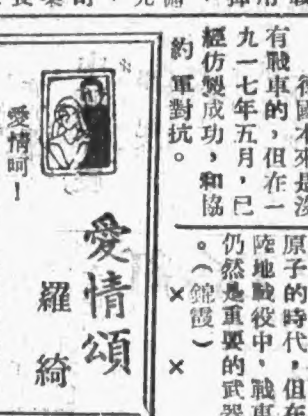 國本來是沒
有戰車的,但在一
九一七年五月,已
經仿製成功,和協
約軍對抗。
原子的時代,但
陸地戰役中,戰車
仍然是重要的武器
。(錦霞)××
愛情頌
羅綺
愛情呵!